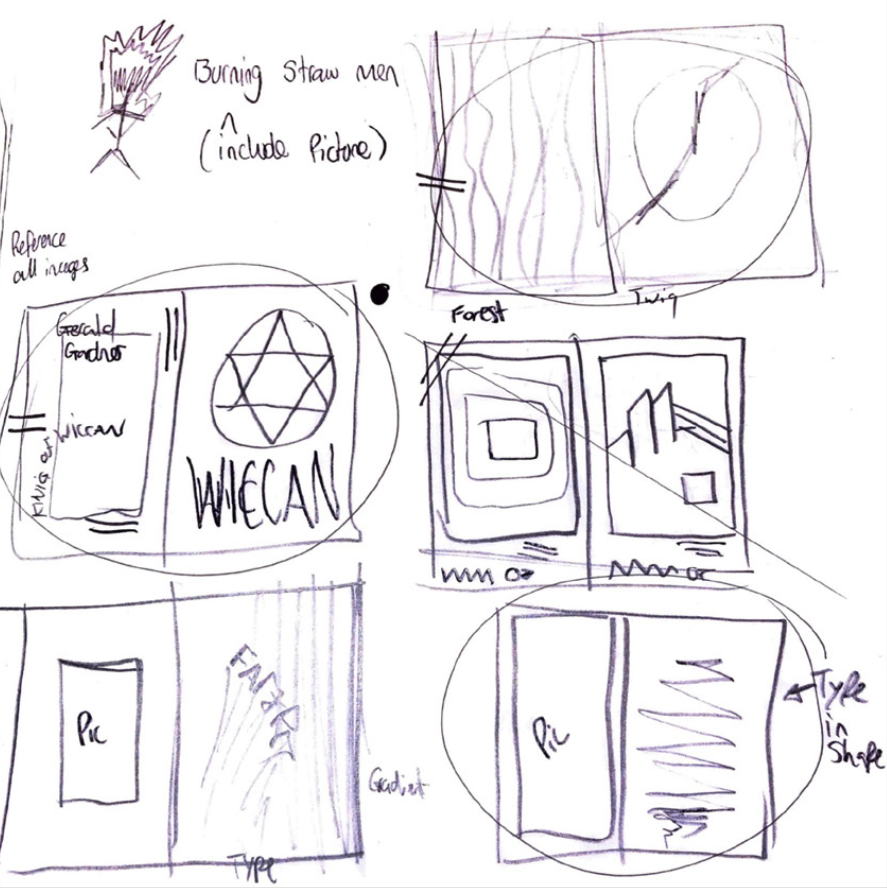 Burning Straw men
(include Picture)
Reference
all images
Forest
Twig
Gerald
Gardner
WICCAN
WICCAN
Pic
Gradient
TYPE
Pic
Type
in
Shape